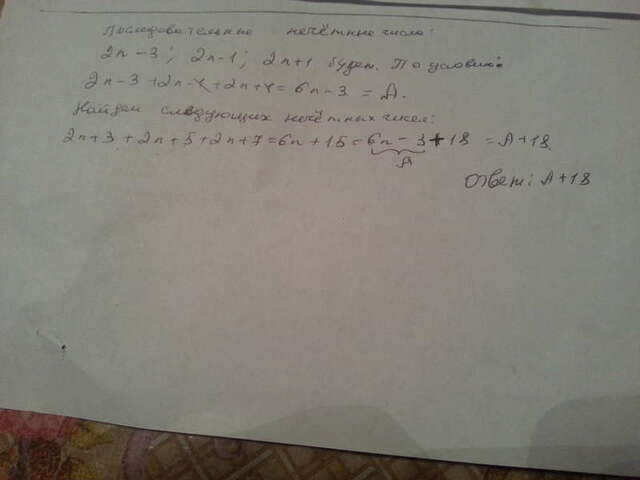 Последовательные нечётные числа:
2n-3; 2n-1; 2n+1 будем. По условию
2n-3+2n-1+2n+1=6n-3=A.
Найдем следующих нечётных чисел:
2n+3+2n+5+2n+7=6n+15=6n-3+18=A+18
A
Ответ: A+18